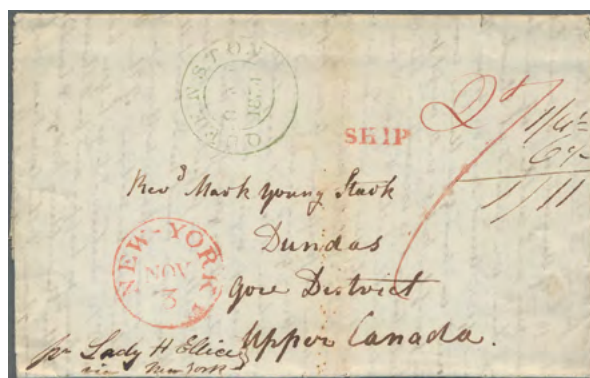 QUEENSTON
1834
SHIP
1/4½
6½
1/11
Revd Mark Young Stark
Dundas
Gore District
Upper Canada.
NEW-YORK
NOV
3
pr Lady H Ellice
via New York